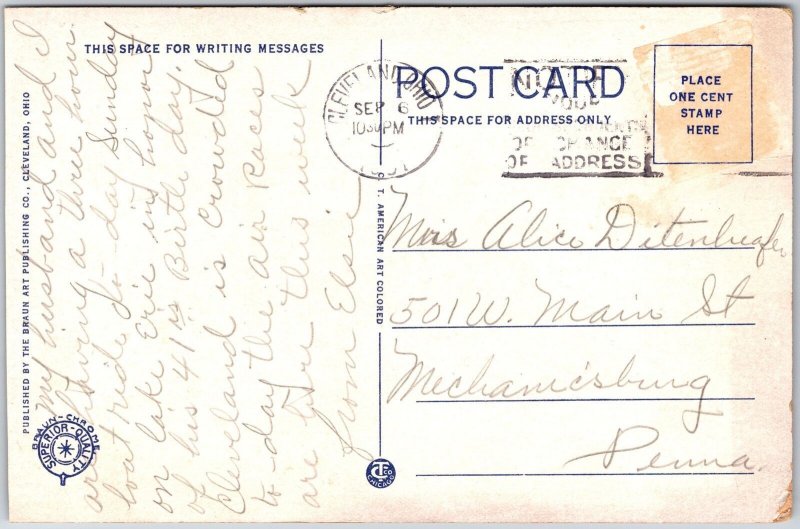 THIS SPACE FOR WRITING MESSAGES
POST CARD
THIS SPACE FOR ADDRESS ONLY
PLACE
ONE CENT
STAMP
HERE
CLEVELAND, OHIO
SEP 6
10 30 PM
NOTIFY
YOUR
OF CHANGE
OF ADDRESS
My husband and I
are having a three hour
boat ride to-day Sunday
on lake Erie in honor
of his 41 is Birthday.
Cleveland is crowded
to-day the air Races
are here this week
from Elsie
Alice
501 W. Main St
Mechanicsburg
Penna.
PUBLISHED BY THE BRAUN ART PUBLISHING CO., CLEVELAND, OHIO
BRAUN-CHROME
SUPERIOR-QUALITY
C. T. AMERICAN ART COLORED
CT CO
CHICAGO